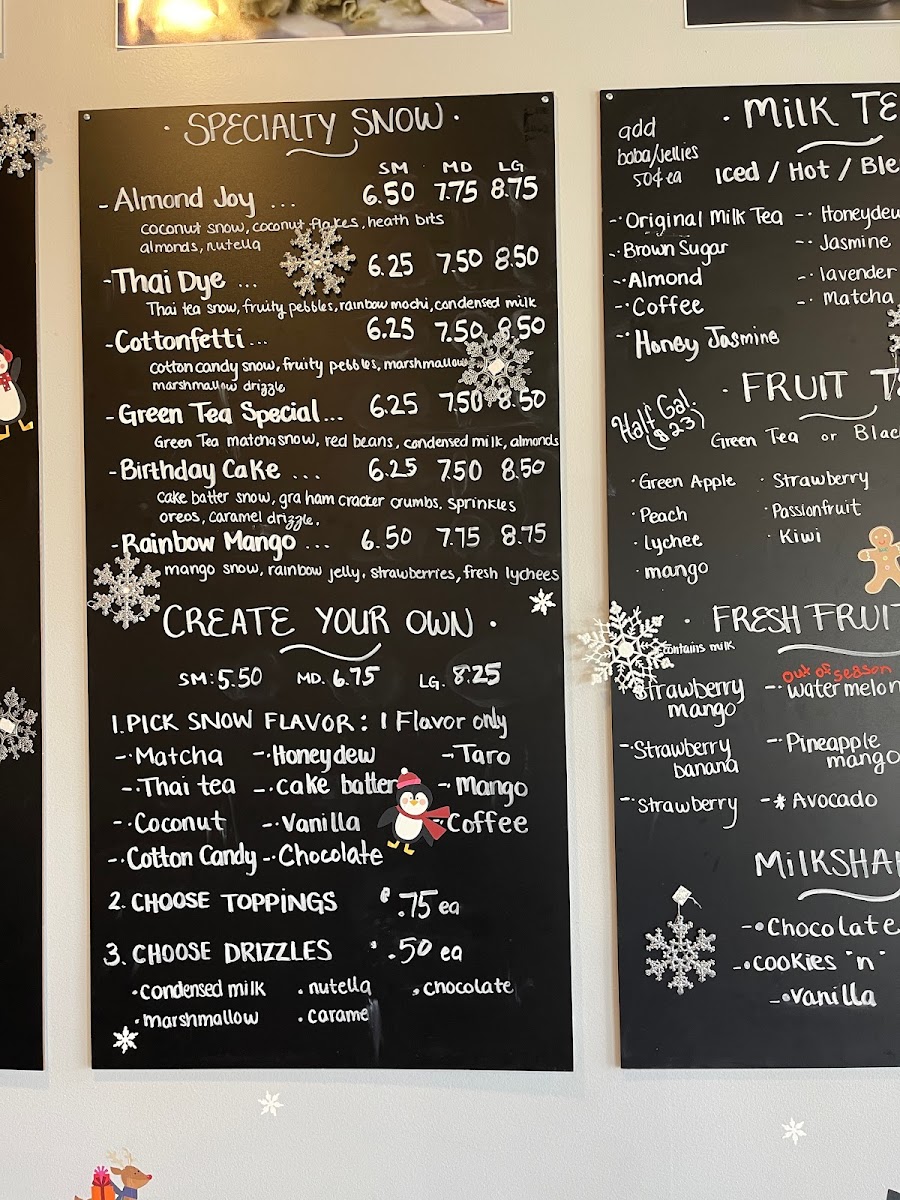 · SPECIALTY SNOW ·
SM MD LG
- Almond Joy ... 6.50 7.75 8.75
coconut snow, coconut flakes, heath bits
almonds, nutella
- Thai Dye ... 6.25 7.50 8.50
Thai tea snow, fruity pebbles, rainbow mochi, condensed milk
- Cottonfetti ... 6.25 7.50 8.50
cotton candy snow, fruity pebbles, marshmallow
marshmallow drizzle
- Green Tea Special ... 6.25 7.50 8.50
Green Tea matcha snow, red beans, condensed milk, almonds
- Birthday Cake ... 6.25 7.50 8.50
cake batter snow, graham cracker crumbs, sprinkles
oreos, caramel drizzle.
- Rainbow Mango ... 6.50 7.75 8.75
mango snow, rainbow jelly, strawberries, fresh lychees
CREATE YOUR OWN ·
SM: 5.50 MD. 6.75 LG. 8.25
1. PICK SNOW FLAVOR: 1 Flavor only
-· Matcha -· Honeydew - Taro
-· Thai tea -· cake batter -· Mango
-· Coconut -· Vanilla Coffee
-· Cotton Candy -· Chocolate
2. CHOOSE TOPPINGS .75 ea
3. CHOOSE DRIZZLES .50 ea
· condensed milk · nutella · chocolate
· marshmallow · carame
add
boba/jellies
50¢ ea
· MILK TE
Iced / Hot / Ble
-· Original Milk Tea -· Honeydew
-· Brown Sugar -· Jasmine
-· Almond -· lavender
-· Coffee -· Matcha
-· Honey Jasmine
Half Gal.
(823)
· FRUIT T
Green Tea or Blac
· Green Apple · Strawberry
· Peach · Passionfruit
· Lychee · Kiwi
· mango
· FRESH FRUIT
contains milk
out of season
Strawberry -· watermelon
mango
-· Strawberry -· Pineapple
banana mango
-· Strawberry -* Avocado
MILKSHA
-· Chocolate
-· COOKIES "n"
-· Vanilla